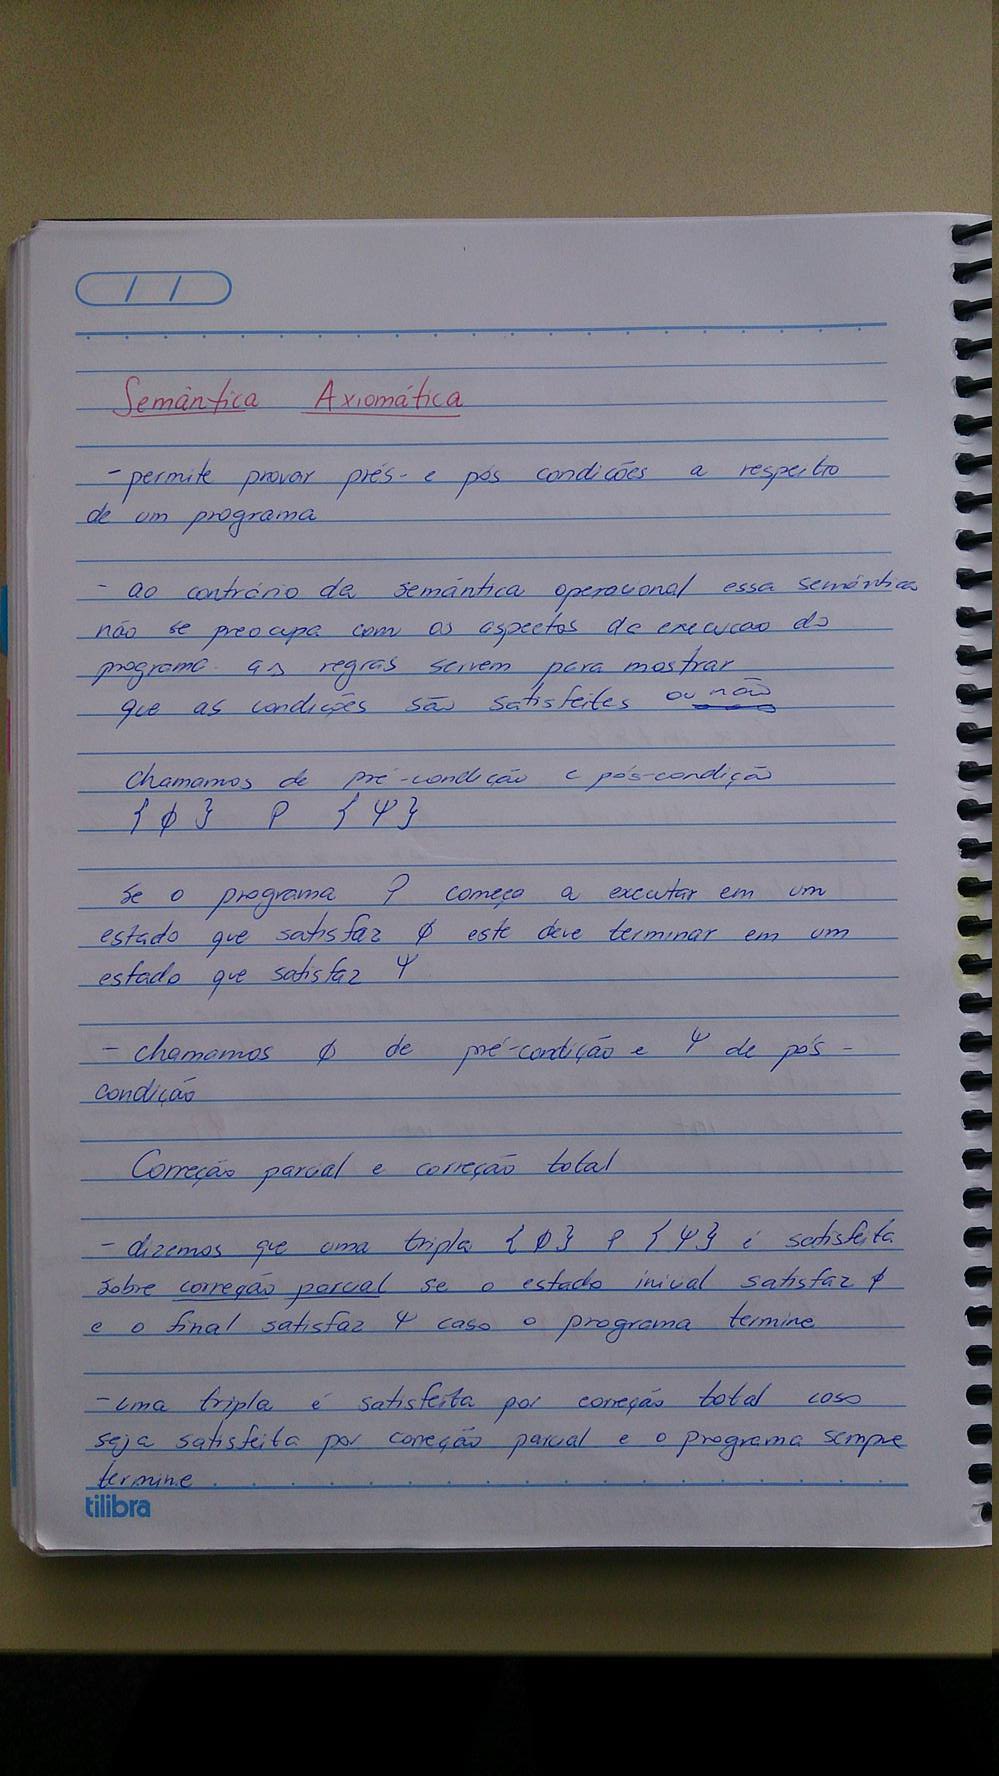 Semântica Axiomática
- permite provar prés- e pós condições a respeito
de um programa
- ao contrário da semântica operacional essa semântica
não se preocupa com os aspectos de execucao do
programa. as regras servem para mostrar
que as condições são satisfeites ou não
Chamamos de pré-condição e pós-condição
{ ϕ } P { Ψ }
se o programa P começa a executar em um
estado que satisfaz ϕ este deve terminar em um
estado que satisfaz Ψ
- chamamos ϕ de pré-condição e Ψ de pós-
condição
Correção parcial e correção total
- dizemos que uma tripla { ϕ } P { Ψ } é satisfeita
sobre correção parcial se o estado inicial satisfaz ϕ
e o final satisfaz Ψ caso o programa termine
- uma tripla é satisfeita por correção total caso
seja satisfeita por correção parcial e o programa sempre
termine
tilibra